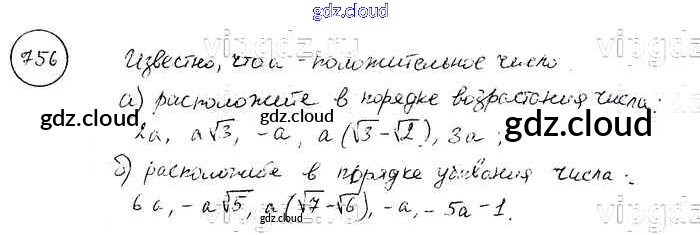 gdz.cloud
756 Известно, что a – положительное число.
а) расположите в порядке возрастания числа:
gdz.cloud gdz.cloud
2a, a√3, -a, a(√3-√2), 3a;
gdz.cloud
б) расположите в порядке убывания числа:
6a, -a√5, a(√7-√6), -a, -5a-1.
gdz.cloud